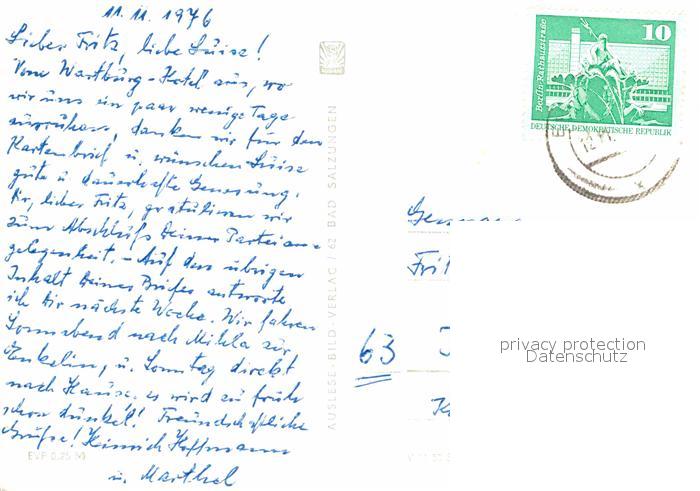 11.11.1976
Lieber Fritz, liebe Luise!
Vom Wartburg-Hotel aus, wo
wir uns ein paar wenige Tage
ausruhen, danken wir für den
Kartenbrief u. wünschen Luise
gute u. dauerhafte Genesung.
Dir, lieber Fritz, gratulieren wir
zum Abschluß Deiner Parteiange-
legenheit. - Auf den übrigen
Inhalt Deines Briefes antworte
ich Dir nächste Woche. Wir fahren
Sonnabend nach Mihla zur
Enkelin, u. Sonntag direkt
nach Hause. es wird zu früh
schon dunkel! Freundschaftliche
Grüße! Heinrich Hoffmann
u. Marthel
EVP 0,25 M
AUSLESE-BILD-VERLAG / 62 BAD SALZUNGEN
10
Berlin-Rathausstraße
DEUTSCHE DEMOKRATISCHE REPUBLIK
Frit
63
privacy protection
Datenschutz